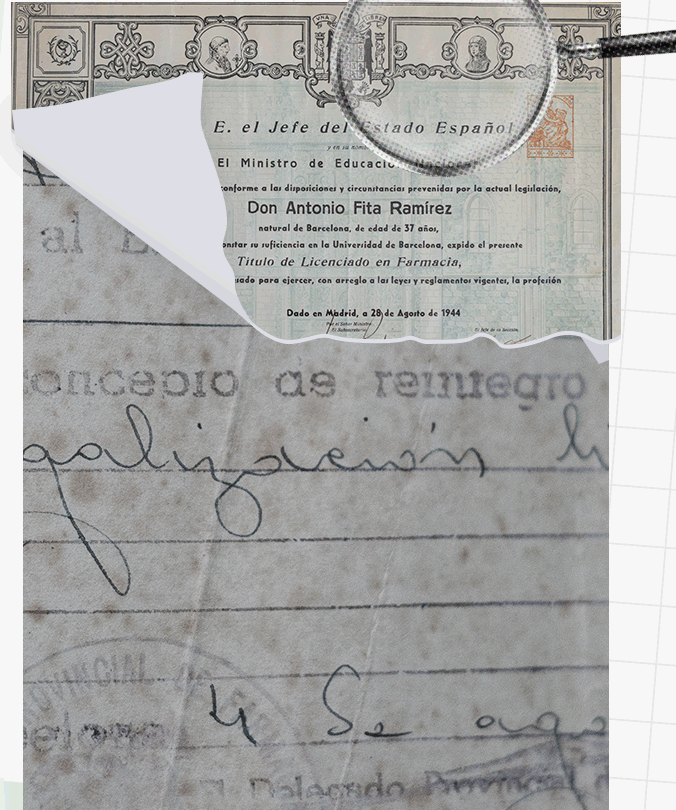 UNA LIBRE
E. el Jefe del Estado Español
y en su nombre
El Ministro de Educación Nacional
conforme a las disposiciones y circunstancias prevenidas por la actual legislación,
Don Antonio Fita Ramírez
natural de Barcelona, de edad de 37 años,
onstar su suficiencia en la Universidad de Barcelona, expido el presente
Título de Licenciado en Farmacia,
sado para ejercer, con arreglo a las leyes y reglamentos vigentes, la profesión
Dado en Madrid, a 28 de Agosto de 1944
Por el Señor Ministro
El Subsecretario,
El Jefe de la Sección,
al
oncepto de reintegro
galización
elona 4 de ago
Delegado Provincial